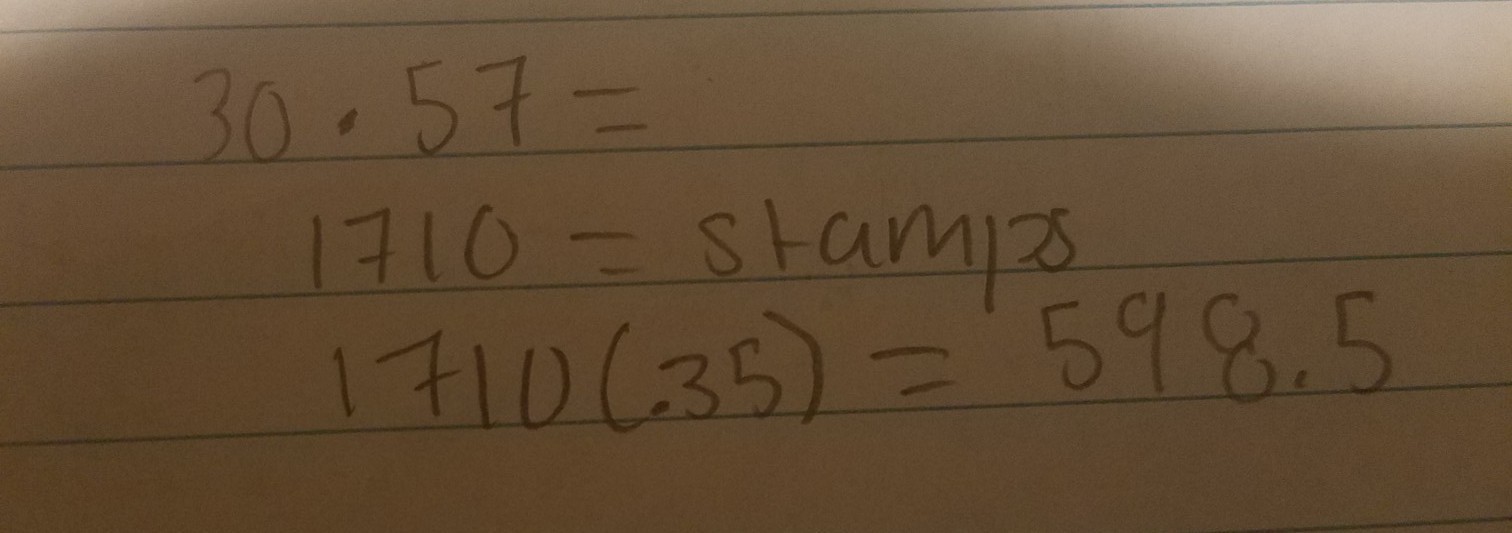 30 · 57 =
1710 = stamps
1710(.35) = 598.5